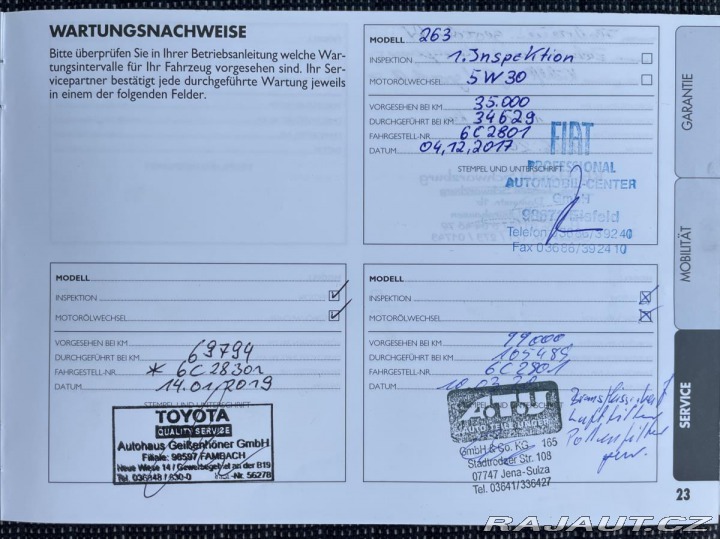 WARTUNGSNACHWEISE
Bitte überprüfen Sie in Ihrer Betriebsanleitung welche War-
tungsintervalle für Ihr Fahrzeug vorgesehen sind. Ihr Ser-
vicepartner bestätigt jede durchgeführte Wartung jeweils
in einem der folgenden Felder.
MODELL 263
INSPEKTION 1. Inspektion
MOTORÖLWECHSEL 5W30
VORGESEHEN BEI KM 35.000
DURCHGEFÜHRT BEI KM 34629
FAHRGESTELL-NR. 6C2801
DATUM 04.12.2017
FIAT
STEMPEL UND UNTERSCHRIFT
PROFESSIONAL
AUTOMOBIL-CENTER
GmbH
Eisfeld
Telefon 03686/39240
Fax 03686/392410
GARANTIE
MOBILITÄT
SERVICE
MODELL
INSPEKTION
MOTORÖLWECHSEL
VORGESEHEN BEI KM
DURCHGEFÜHRT BEI KM 69794
FAHRGESTELL-NR. * 6C28301
DATUM 14.01.2019
STEMPEL UND UNTERSCHRIFT
TOYOTA
QUALITY SERVICE
Autohaus Geißenhöner GmbH
Filiale: 98597 FAMBACH
Neue Wiese 14 / Gewerbegebiet an der B19
Tel. 036848 / 830-0 -Nr. 56278
MODELL
INSPEKTION
MOTORÖLWECHSEL
VORGESEHEN BEI KM 99000
DURCHGEFÜHRT BEI KM 105485
FAHRGESTELL-NR. 6C2801
DATUM
AUTO TEILE UNGER
GmbH & Co. KG 165
Stadtrodaer Str. 108
07747 Jena-Sulza
Tel. 03641/336427
Luftfilter
Pollenfilter
23
RAJAUT.CZ